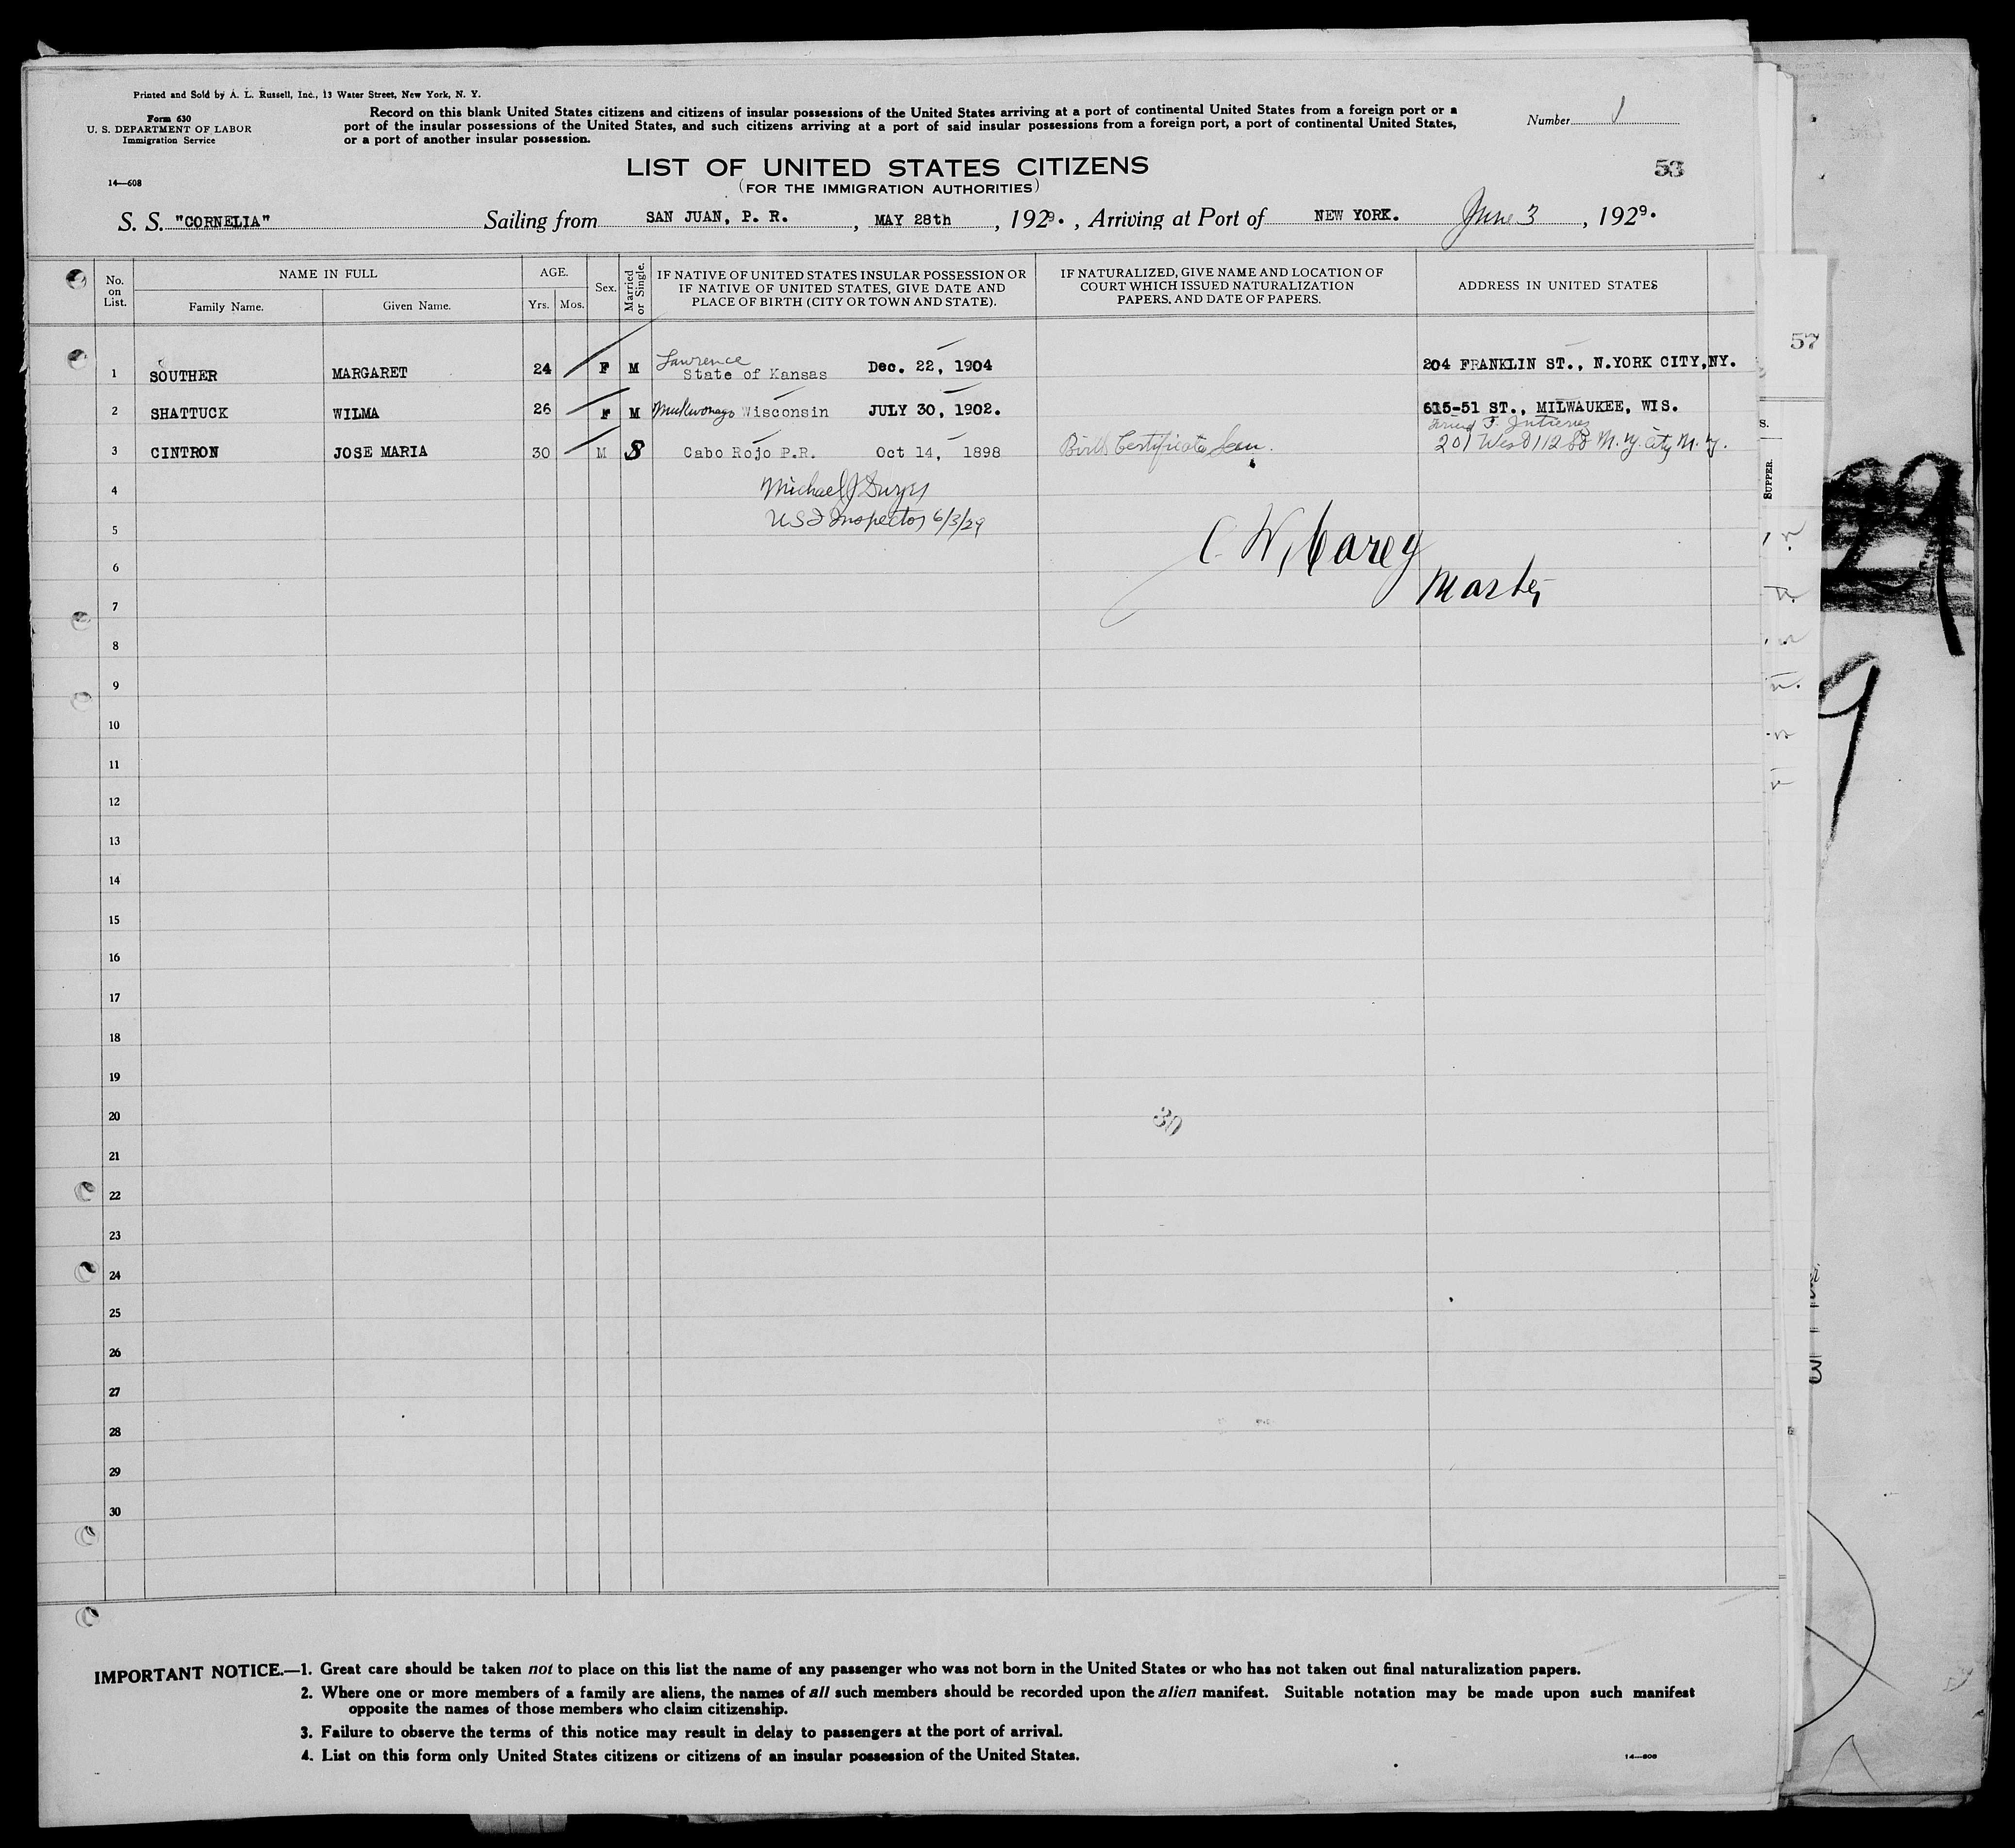 Printed and Sold by A. L. Russell, Inc., 13 Water Street, New York, N. Y.
Form 630
U. S. DEPARTMENT OF LABOR
Immigration Service
14—608
Record on this blank United States citizens and citizens of insular possessions of the United States arriving at a port of continental United States from a foreign port or a
port of the insular possessions of the United States, and such citizens arriving at a port of said insular possessions from a foreign port, a port of continental United States,
or a port of another insular possession.
Number 1
LIST OF UNITED STATES CITIZENS
(FOR THE IMMIGRATION AUTHORITIES)
53
S. S. "CORNELIA" Sailing from SAN JUAN, P. R. , MAY 28th , 1929. , Arriving at Port of NEW YORK. June 3 , 1929.
No. on List.
NAME IN FULL
Family Name.
Given Name.
AGE.
Yrs.
Mos.
Sex.
Married or Single.
IF NATIVE OF UNITED STATES INSULAR POSSESSION OR
IF NATIVE OF UNITED STATES, GIVE DATE AND
PLACE OF BIRTH (CITY OR TOWN AND STATE).
IF NATURALIZED, GIVE NAME AND LOCATION OF
COURT WHICH ISSUED NATURALIZATION
PAPERS, AND DATE OF PAPERS.
ADDRESS IN UNITED STATES
Lawrence
1 SOUTHER MARGARET 24 F M State of Kansas Dec. 22, 1904 204 FRANKLIN ST., N.YORK CITY,NY.
2 SHATTUCK WILMA 26 F M Mukwonago Wisconsin JULY 30, 1902. 615-51 ST., MILWAUKEE, WIS.
3 CINTRON JOSE MARIA 30 M S Cabo Rojo P.R. Oct 14, 1898 Birth Certificate Seen. 201 West 112 St N.Y. City N.Y.
4 Michael J
5 USI Inspector 6/3/29
C. W. Carey
6
Master
7
8
9
10
11
12
13
14
15
16
17
18
19
20
30
21
22
23
24
25
26
27
28
29
30
57
S.
SUPPER.
29
9
IMPORTANT NOTICE.—1. Great care should be taken not to place on this list the name of any passenger who was not born in the United States or who has not taken out final naturalization papers.
2. Where one or more members of a family are aliens, the names of all such members should be recorded upon the alien manifest. Suitable notation may be made upon such manifest
opposite the names of those members who claim citizenship.
3. Failure to observe the terms of this notice may result in delay to passengers at the port of arrival.
4. List on this form only United States citizens or citizens of an insular possession of the United States.
14—608